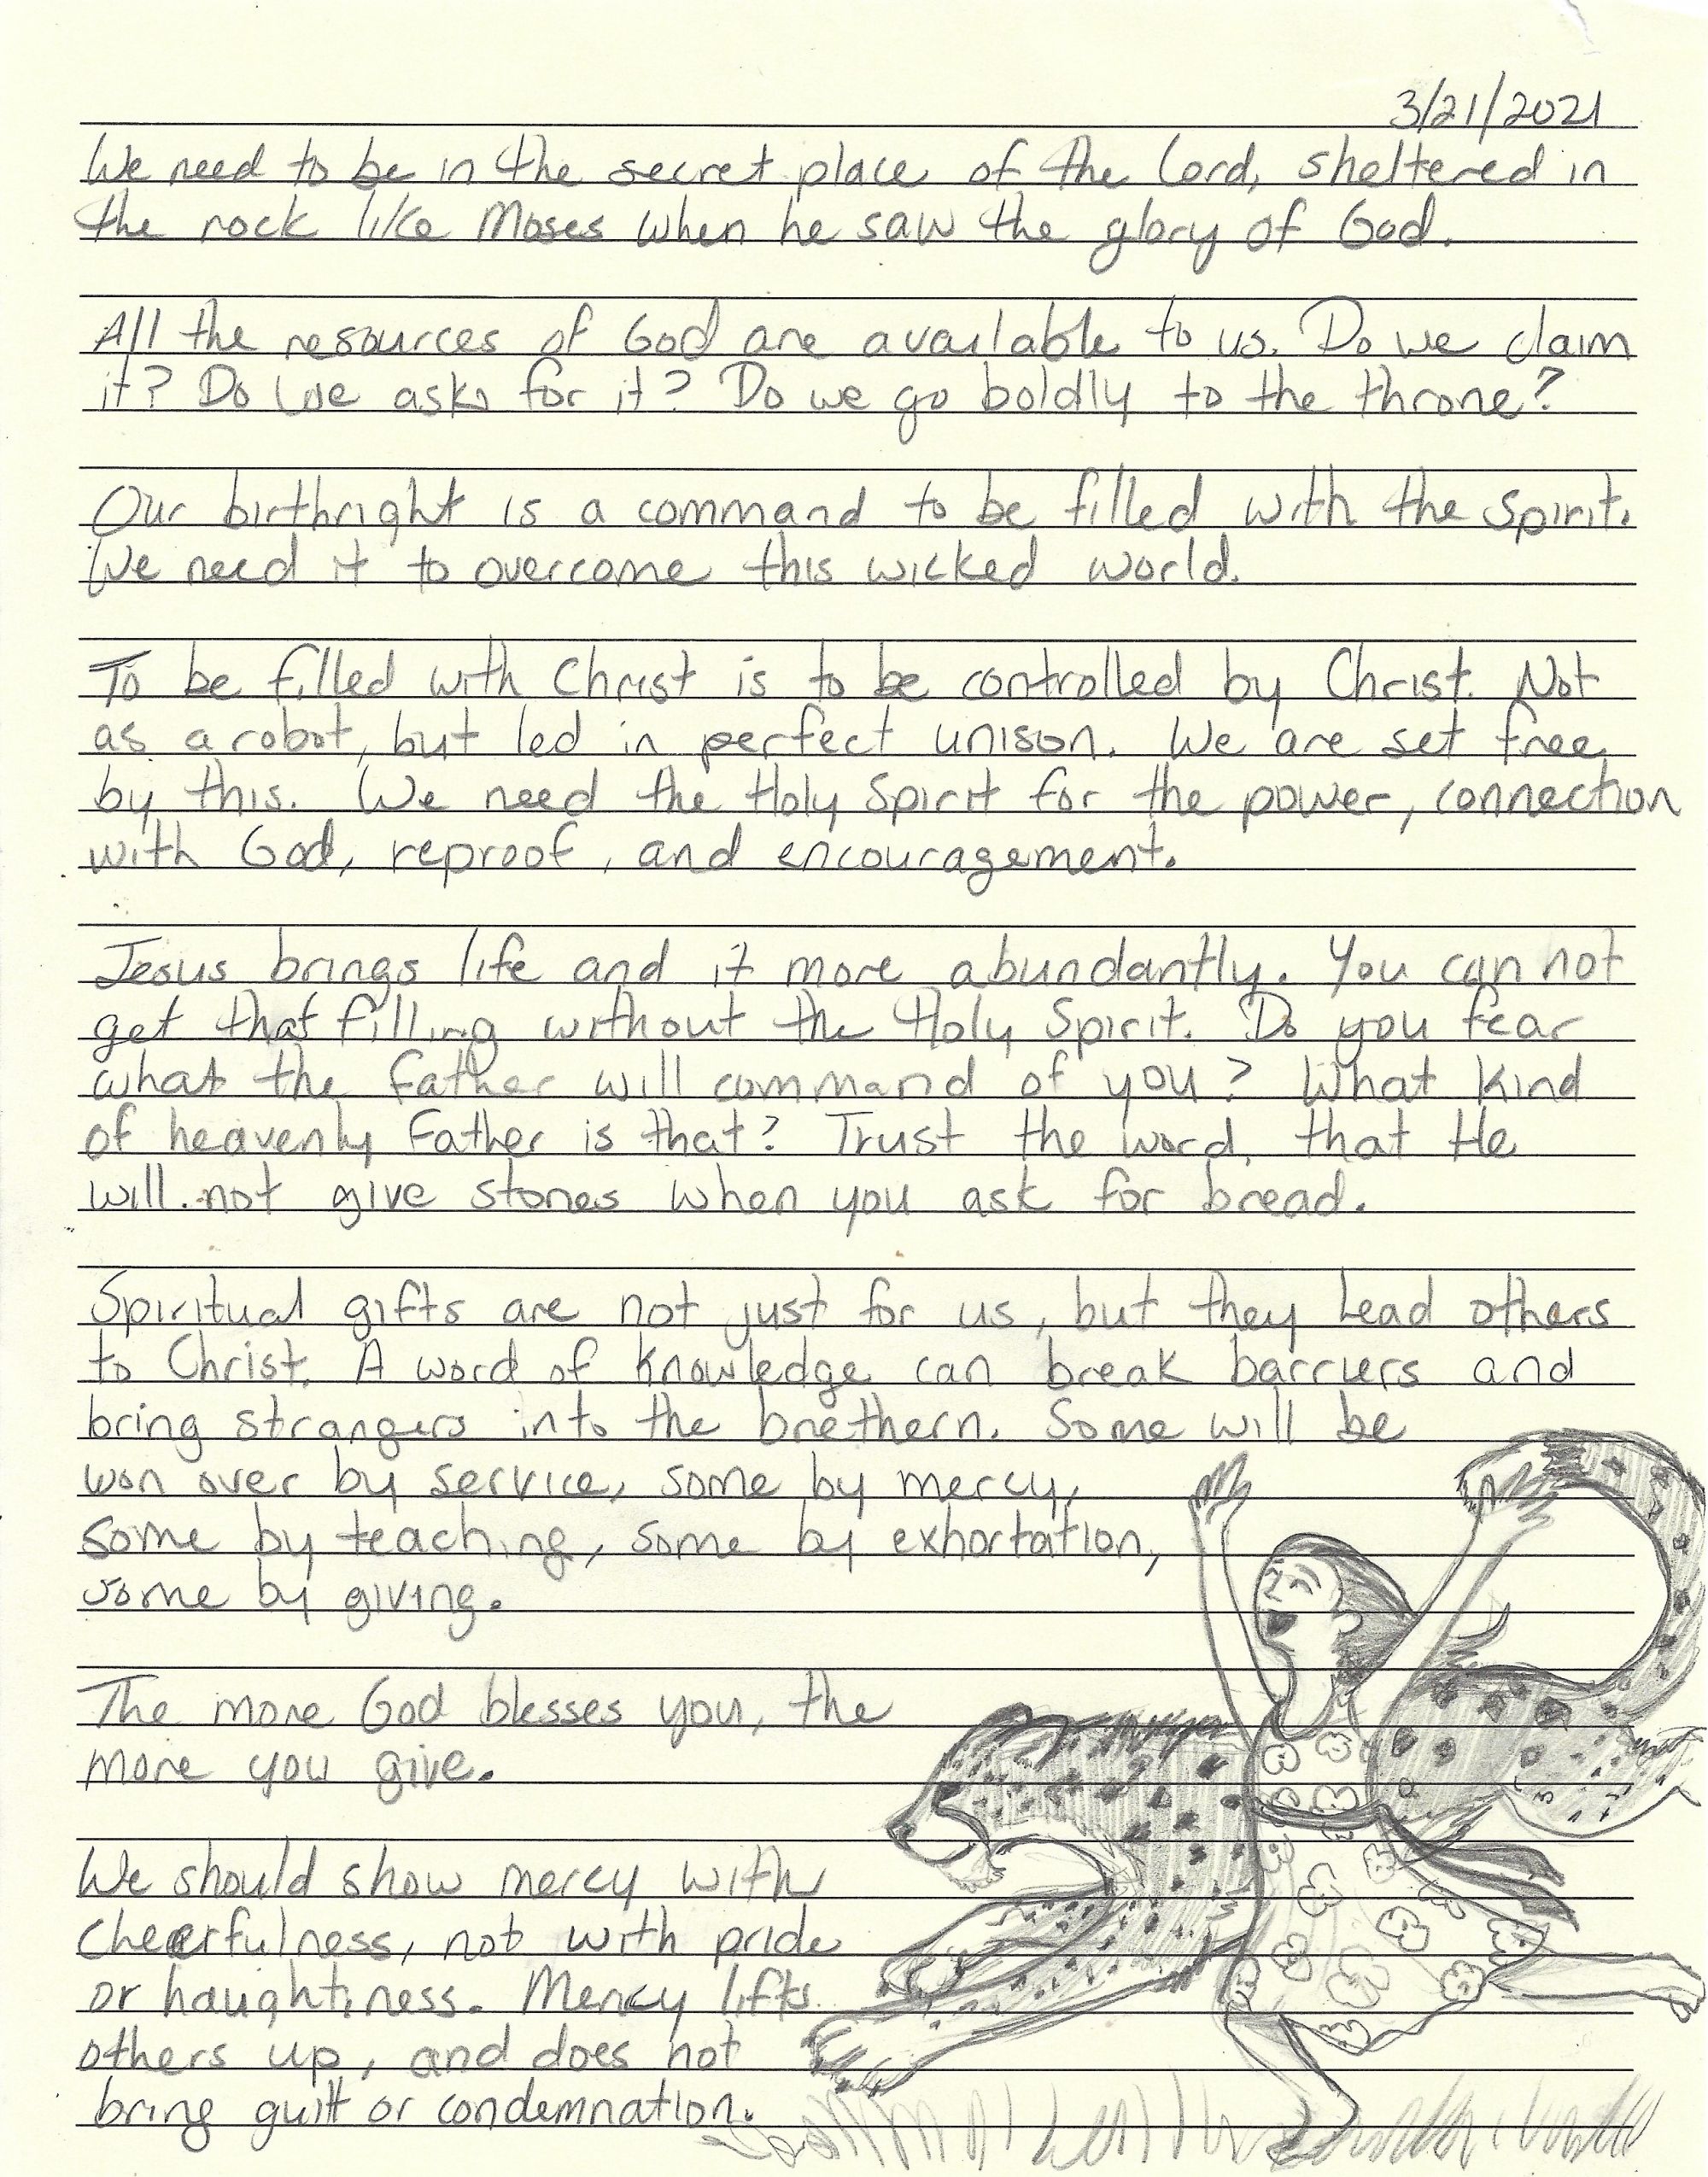 3/21/2021
We need to be in the secret place of the Lord, sheltered in
the rock like Moses when he saw the glory of God.
All the resources of God are available to us. Do we claim
it? Do we ask for it? Do we go boldly to the throne?
Our birthright is a command to be filled with the Spirit.
We need it to overcome this wicked world.
To be filled with Christ is to be controlled by Christ. Not
as a robot, but led in perfect unison. We are set free
by this. We need the Holy Spirit for the power, connection
with God, reproof, and encouragement.
Jesus brings life and it more abundantly. You can not
get that filling without the Holy Spirit. Do you fear
what the Father will command of you? What kind
of heavenly Father is that? Trust the word, that He
will not give stones when you ask for bread.
Spiritual gifts are not just for us, but they lead others
to Christ. A word of knowledge can break barriers and
bring strangers into the brethern. Some will be
won over by service, some by mercy,
some by teaching, some by exhortation,
some by giving.
The more God blesses you, the
more you give.
We should show mercy with
cheerfulness, not with pride
or haughtiness. Mercy lifts
others up, and does not
bring guilt or condemnation.